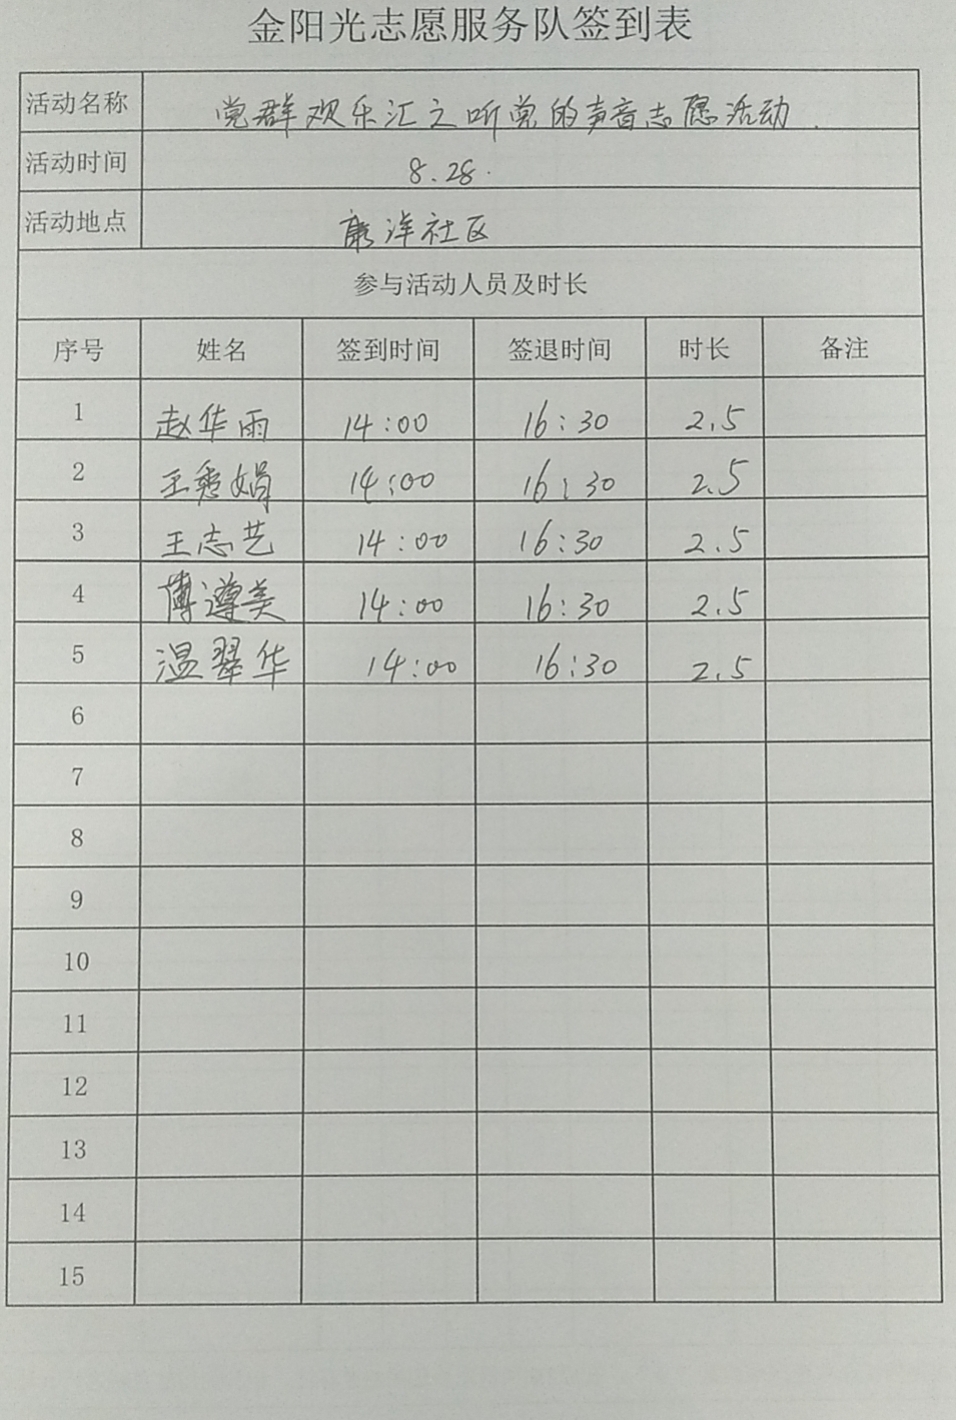 金阳光志愿服务队签到表
活动名称 党群观乐汇之听党的声音志愿活动.
活动时间 8.28.
活动地点 康洋社区
参与活动人员及时长
序号 姓名 签到时间 签退时间 时长 备注
1 赵华雨 14:00 16:30 2.5
2 王秀娟 14:00 16:30 2.5
3 王志艺 14:00 16:30 2.5
4 薄遵美 14:00 16:30 2.5
5 温翠华 14:00 16:30 2.5
6
7
8
9
10
11
12
13
14
15